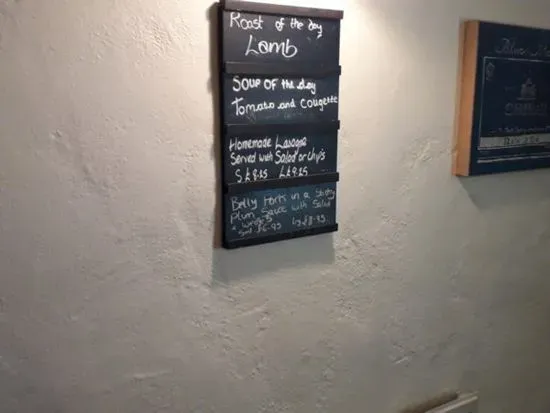 Roast of the day
Lamb
Soup of the day
Tomato and Cougette
Homemade Lasagne
Served with Salad or Chip's
S £8.25 L £9.25
Belly Pork in a Sticky
Plum Sauce with Salad
& wedges
Sml £6.95 Lg £8.95
Blue